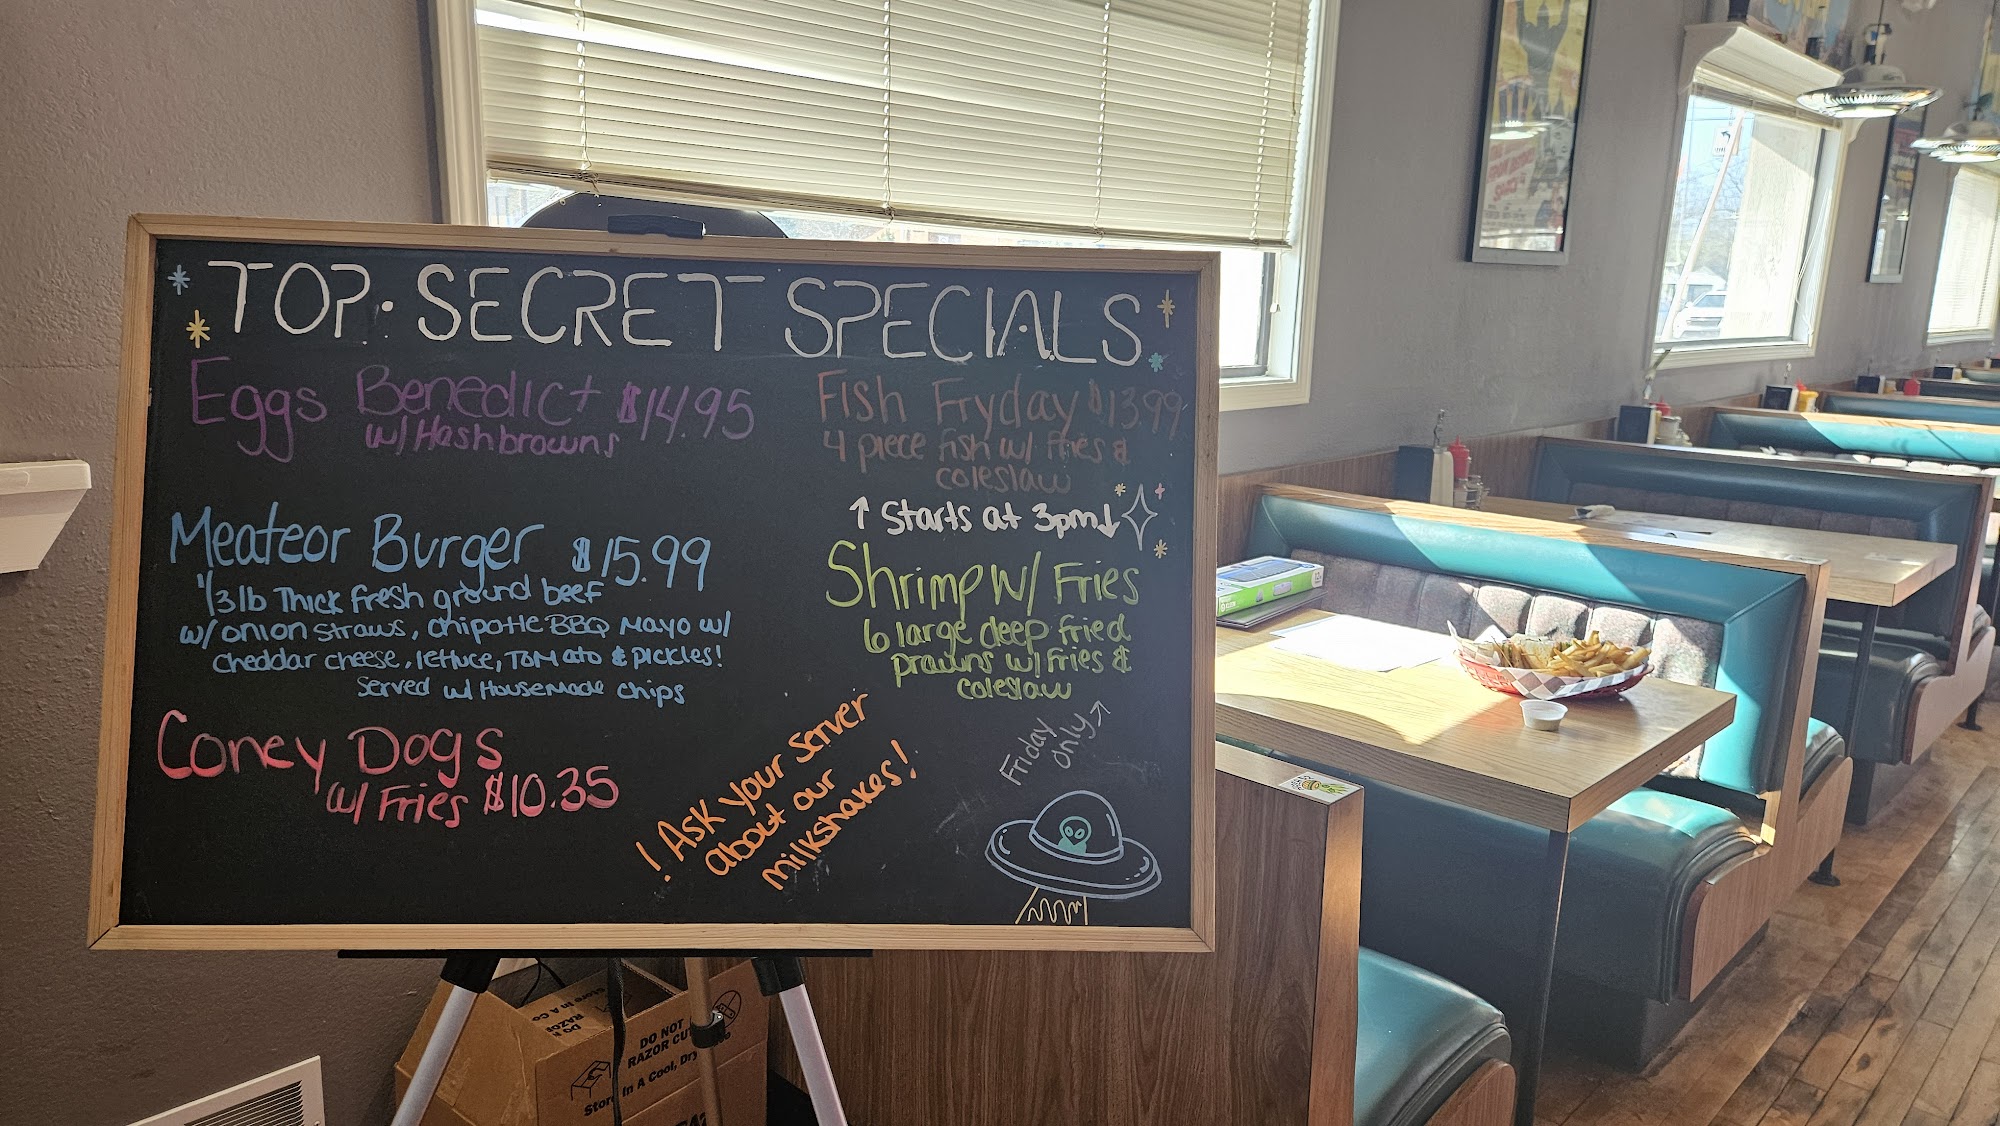 TOP. SECRET SPECIALS
Eggs Benedict $14.95
w/ Hashbrowns
Meateor Burger $15.99
1/3 lb Thick fresh ground beef
w/ onion straws, chipotle BBQ Mayo w/
cheddar cheese, lettuce, Tomato & pickles!
Served w/ Housemade chips
Coney Dogs
w/ Fries $10.35
! Ask your server
about our
milkshakes!
Fish Fryday $13.99
4 piece fish w/ fries &
coleslaw
↑ Starts at 3pm ↓
Shrimp w/ Fries
6 large deep fried
prawns w/ fries &
coleslaw
Friday
only
DO NOT
RAZOR CU
In A Cool, Dry
Store In A Co